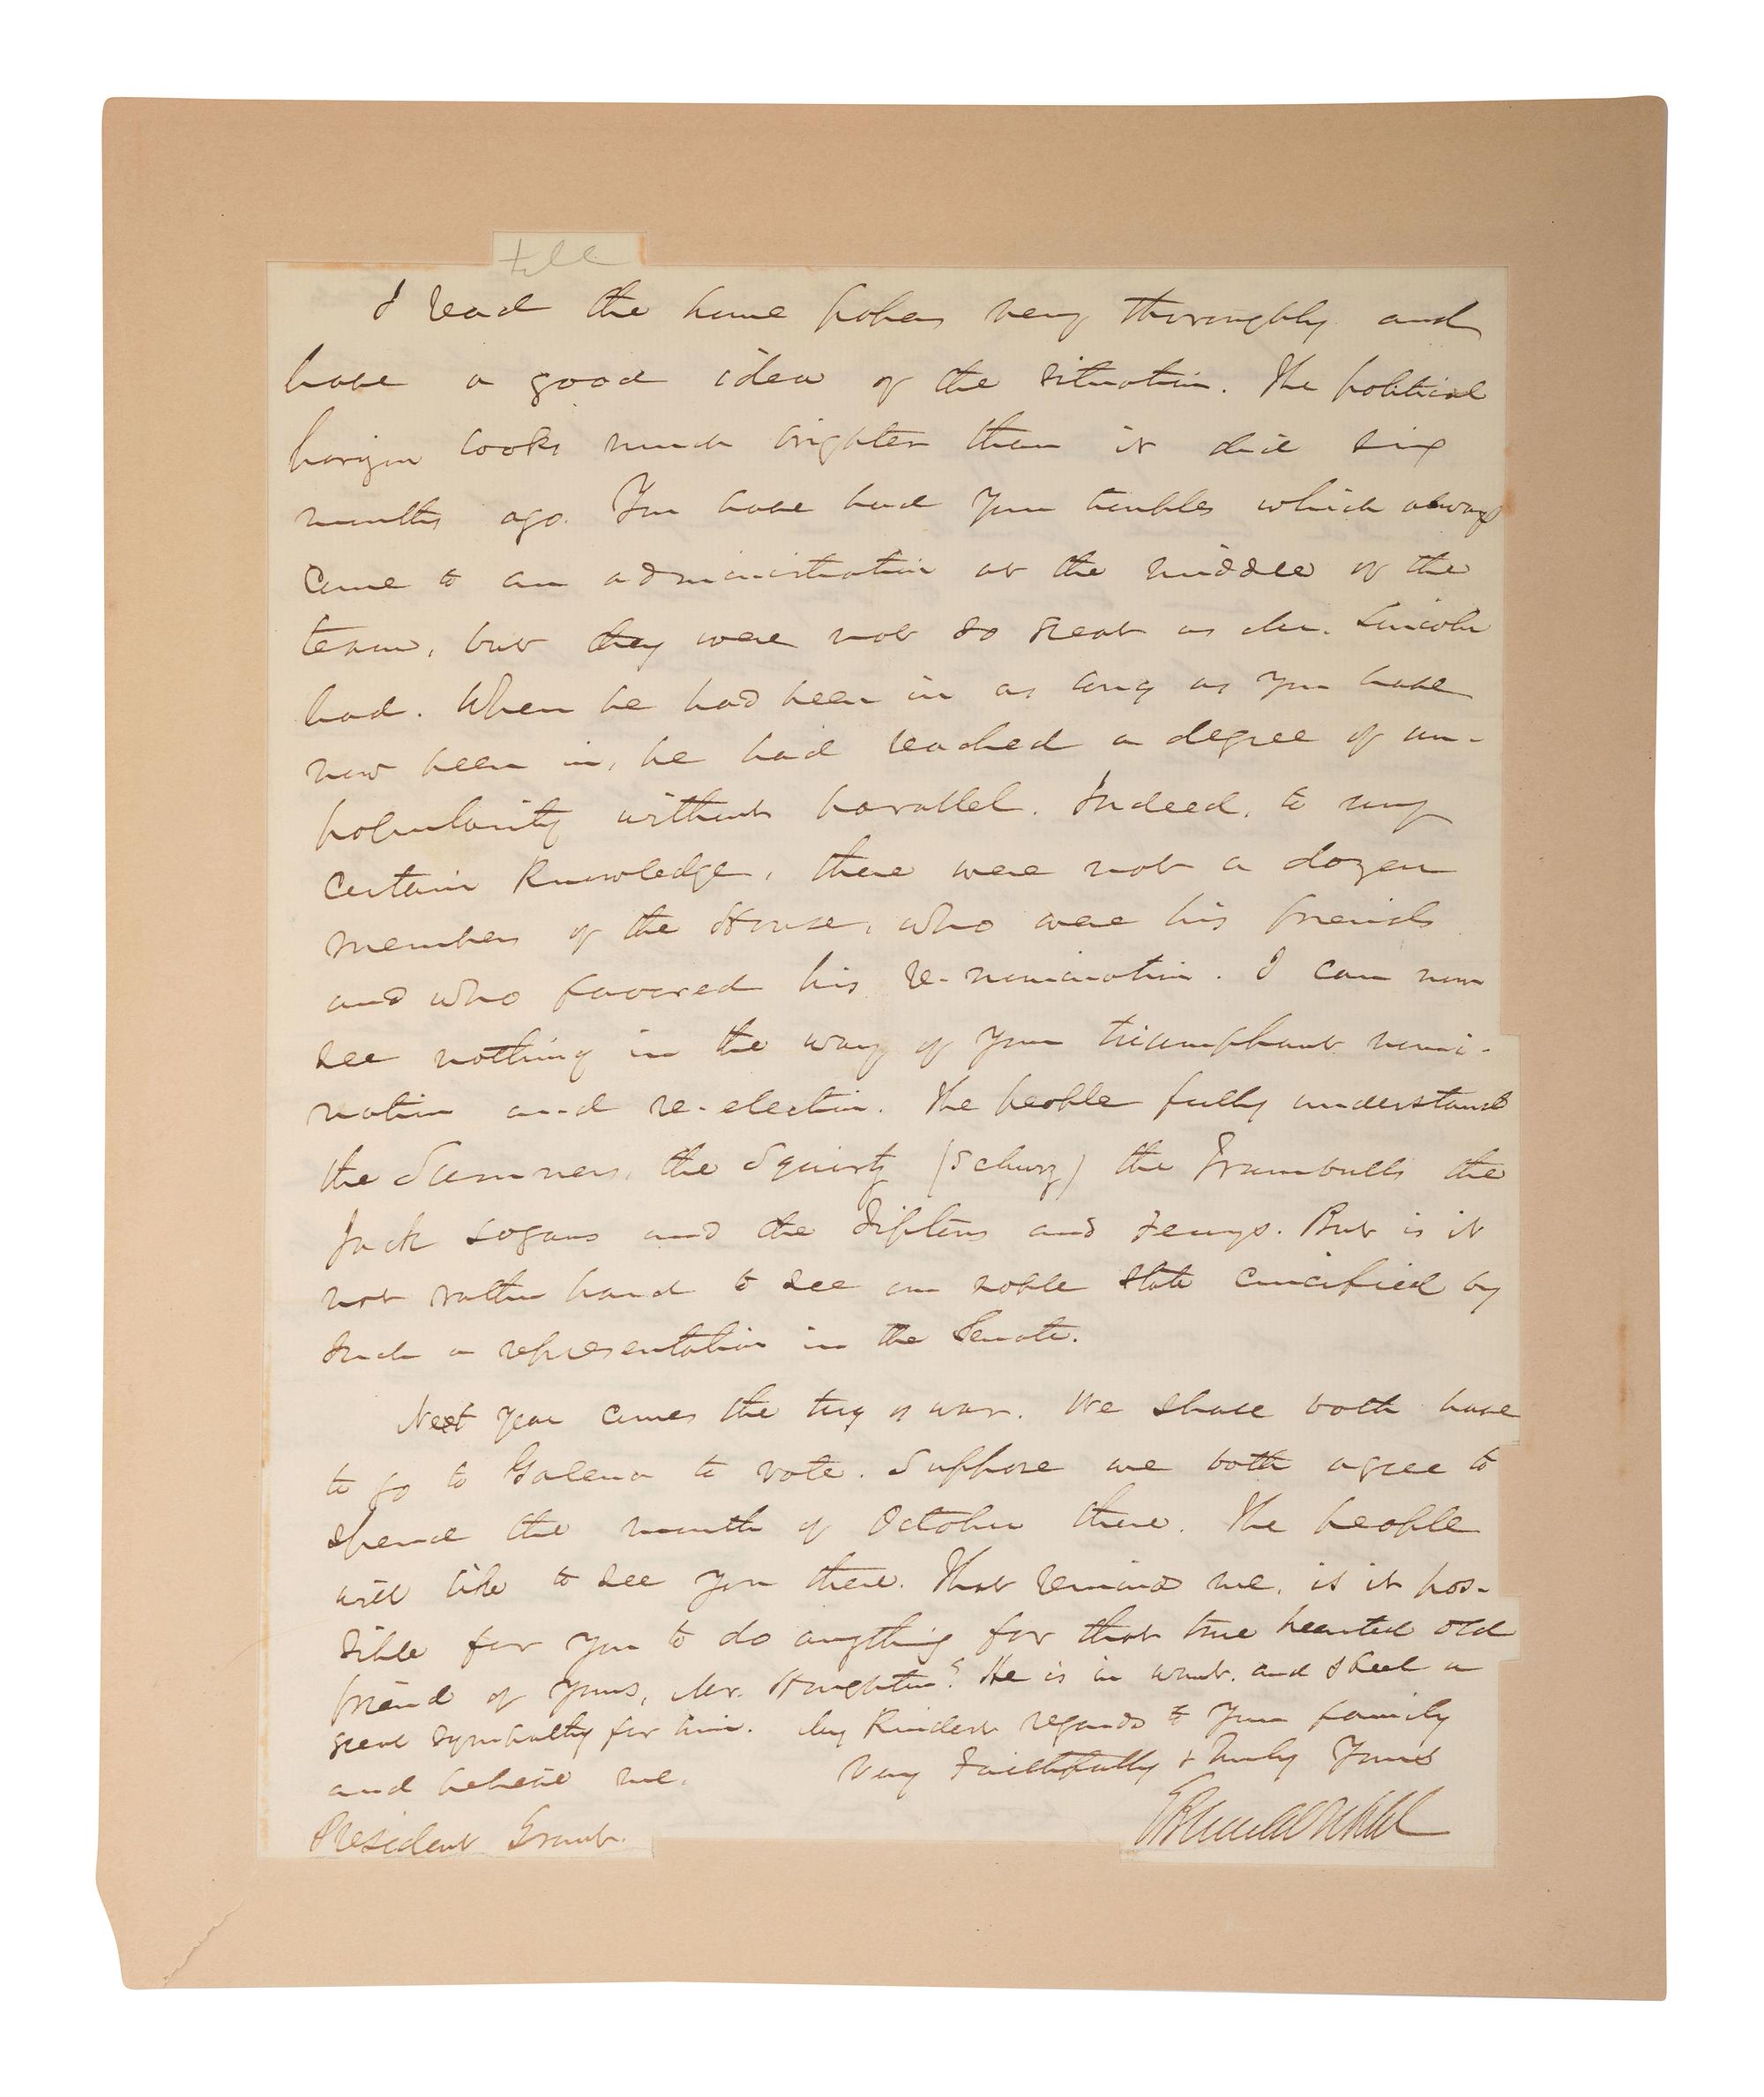 tell
I read the home papers very thoroughly and
have a good idea of the situation. The political
horizon looks much brighter than it did six
months ago. You have had your troubles which always
come to an administration at the middle of the
term, but they were not so great as Mr. Lincoln
had. When he had been in as long as you have
now been in, he had reached a degree of un-
popularity without parallel. Indeed, to my
certain knowledge, there were not a dozen
members of the House, who were his friends
and who favored his re-nomination. I can now
see nothing in the way of your triumphant nomi-
nation and re-election. The people fully understand
the Sumners, the Squirtz (Schurz) the Trumbulls the
Jack Logans and the Tiptons and Fentons. But is it
not rather hard to see our noble state crucified by
such a representation in the Senate.
Next year comes the tug of war. We shall both have
to go to Galena to vote. Suppose we both agree to
spend the month of October there. The people
will like to see you there. That reminds me, is it pos-
sible for you to do anything for that true hearted old
friend of yours, Mr. Houghton? He is in want, and I feel a
great sympathy for him. My kindest regards to your family
and believe me, Very Faithfully & Truly Yours
President Grant. E B Washburne